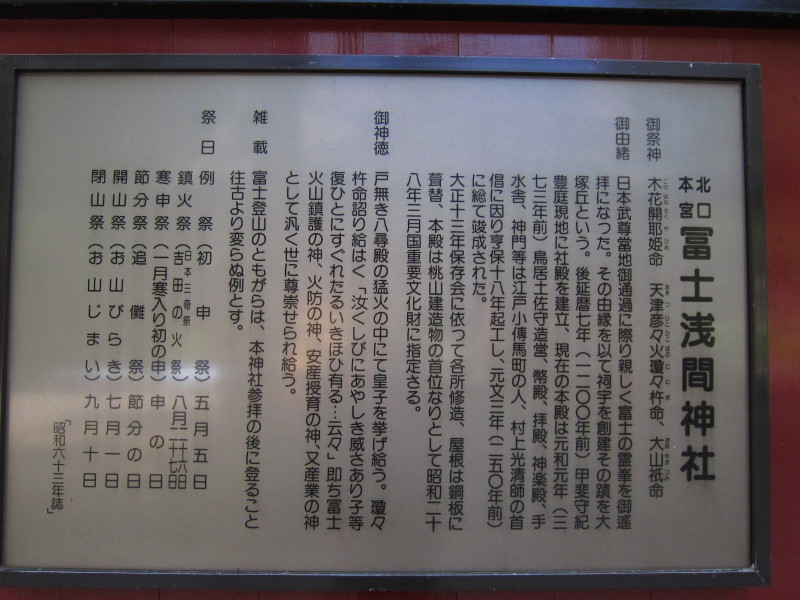 北口本宮冨士浅間神社
御祭神 木花開耶姫命 天津彦々火瓊々杵命、大山祇命
御由緒 日本武尊當地御通過に際り親しく富士の霊峯を御遙
拝になった。その由縁を以て祠宇を創建その蹟を大
塚丘という。後延暦七年(一二〇〇年前)甲斐守紀
豊庭現地に社殿を建立、現在の本殿は元和元年(三
七三年前)鳥居土佐守造営、幣殿、拝殿、神楽殿、手
水舎、神門等は江戸小傳馬町の人、村上光清師の首
倡に因り享保十八年起工し、元文三年(二五〇年前)
に総て竣成された。
大正十三年保存会に依って各所修造、屋根は銅板に
葺替、本殿は桃山建造物の首位なりとして昭和二十
八年三月国重要文化財に指定さる。
御神徳 戸無き八尋殿の猛火の中にて皇子を挙げ給う。瓊々
杵命詔り給はく「汝くしびにあやしき威さあり子等
復ひとにすぐれたるいきほひ有る…云々」即ち富士
火山鎮護の神、火防の神、安産授育の神、又産業の神
として汎く世に尊崇せられ給う。
雑載 富士登山のともがらは、本神社参拝の後に登ること
往古より変らぬ例とす。
祭日 例祭(初申祭)五月五日
鎮火祭(日本三奇祭吉田の火祭)八月二十六日二十七日
寒申祭(一月寒入り初の申)申の日
節分祭(追儺祭)節分の日
開山祭(お山びらき)七月一日
閉山祭(お山じまい)九月十日
「昭和六十三年誌」